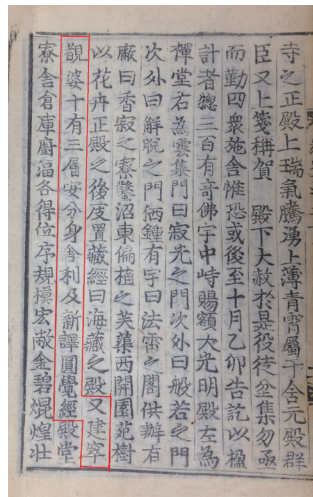 寺之正殿上瑞氣騰湧上薄青霄屬于含元殿群
臣又上箋稱賀 殿下大赦於是役徒坌集匆亟
而勤四衆施舍惟恐或後至十月乙卯告訖以楹
計者摠三百有奇佛宇中峙賜額大光明殿左爲
禪堂右爲雲集門曰寂光之門次外曰般若之門
次外曰解脫之門栖鍾有宇曰法雷之閣供辦有
廠曰香寂之寮鑿沼東偏植之芙蕖西開園苑樹
以花卉正殿之後庋置藏經曰海藏之殿又建窣
覩婆十有三層安分身舍利及新譯圓覺經殿堂
寮舍倉庫廚湢各得位序規模宏敞金碧焜煌壯